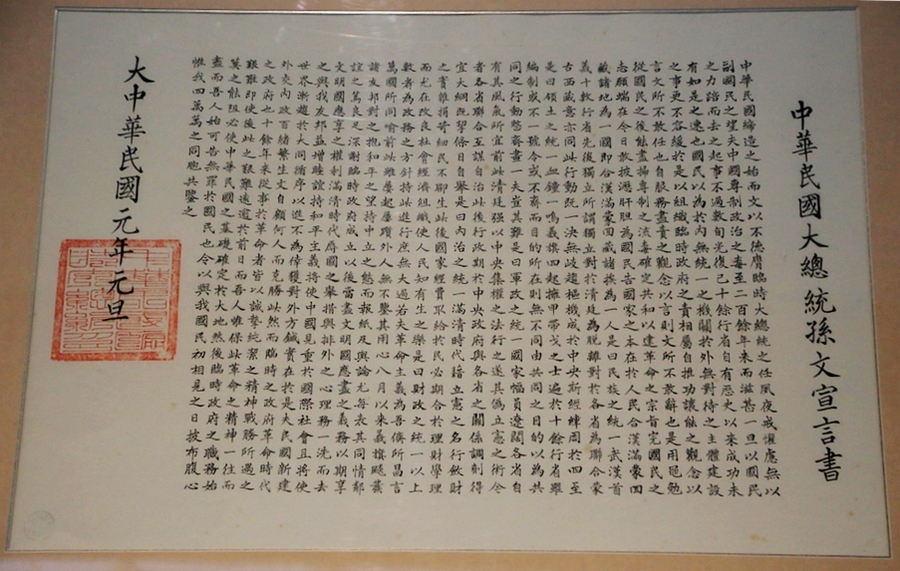 中華民國大總統孫文宣言書
中華民國締造之始而文以不德膺臨時大總統之任夙夜戒懼慮無以
副國民之望夫中國專制政治之毒至二百餘年來而滋甚一旦以國民
之力踣而去之起事不過數旬光復已十餘行省自有歷史以來成功未
有如是之速也國民以為於內無統一之機關於外無對待之主體建設
之事更不容緩於是以組織臨時政府之責相屬自推功讓能之觀念以
言文所不敢任也自服務盡責之觀念以言則文所不敢辭也是用黽勉
從國民之後能盡掃專制之流毒確定共和以達革命之宗旨完國民之
志願端在今日敢披瀝肝胆為國民告國家之本在於人民合漢滿蒙回
藏諸地為一國即合漢滿蒙回藏諸族為一人是曰民族之統一武漢首
義十數行省先後獨立所謂獨立對於清廷為脫離對於各省為聯合蒙
古西藏意亦同此行動既一決無歧趨樞機成於中央斯經緯周於四至
是曰領土之統一血鐘一鳴義旗四起擁甲帶戈之士遍於十餘行省雖
編制或不一號令或不齊而目的所在則無不同由共同之目的以為共
同之行動整齊畫一夫豈其難是曰軍政之統一國家幅員遼闊各省自
有其風氣所宜前此清廷強以中央集權之法行之遂其偽立憲之術今
者各省聯合互謀自治此後行政期於中央政府與各省之關係調劑得
宜大綱既挈條目自舉是曰內治之統一滿清時代藉立憲之名行斂財
之實雜捐苛細民不聊生此後國家經費取給於民必期合於理財學理
而尤在改良社會經濟組織使人民知有生之樂是曰財政之統一以上
數者為政務之方針持此進行庶無大過若夫革命主義為吾儕所昌言
萬國所同喻前此雖屢起屢躓外人無不鑒其用心八月以來義旗飆發
諸友邦對之抱和平之望持中立之態而報紙及輿論尤每表其同情鄰
誼之篤良足深謝臨時政府成立以後當盡文明國應盡之義務以期享
文明國應享之權利滿清時代辱國之舉措與排外之心理務一洗而去
之與我友邦益增睦誼持和平主義將使中國見重於國際社會且將使
世界漸趨於大同循序以進不為倖獲對外方鍼實在於是夫民國新建
外交內政百緒繁生文自顧何人而克勝此然而臨時之政府革命時代
之政府也十餘年來從事於革命者皆以誠摯純潔之精神戰勝所遇之
艱難即使後此之艱難遠逾於前日而吾人惟保此革命之精神一往而
莫之能阻必使中華民國之基礎確定於大地然後臨時政府之職務始
盡而吾人始可告無罪於國民也今以與我國民初相見之日披布腹心
惟我四萬萬之同胞共鑒之
大中華民國元年元旦